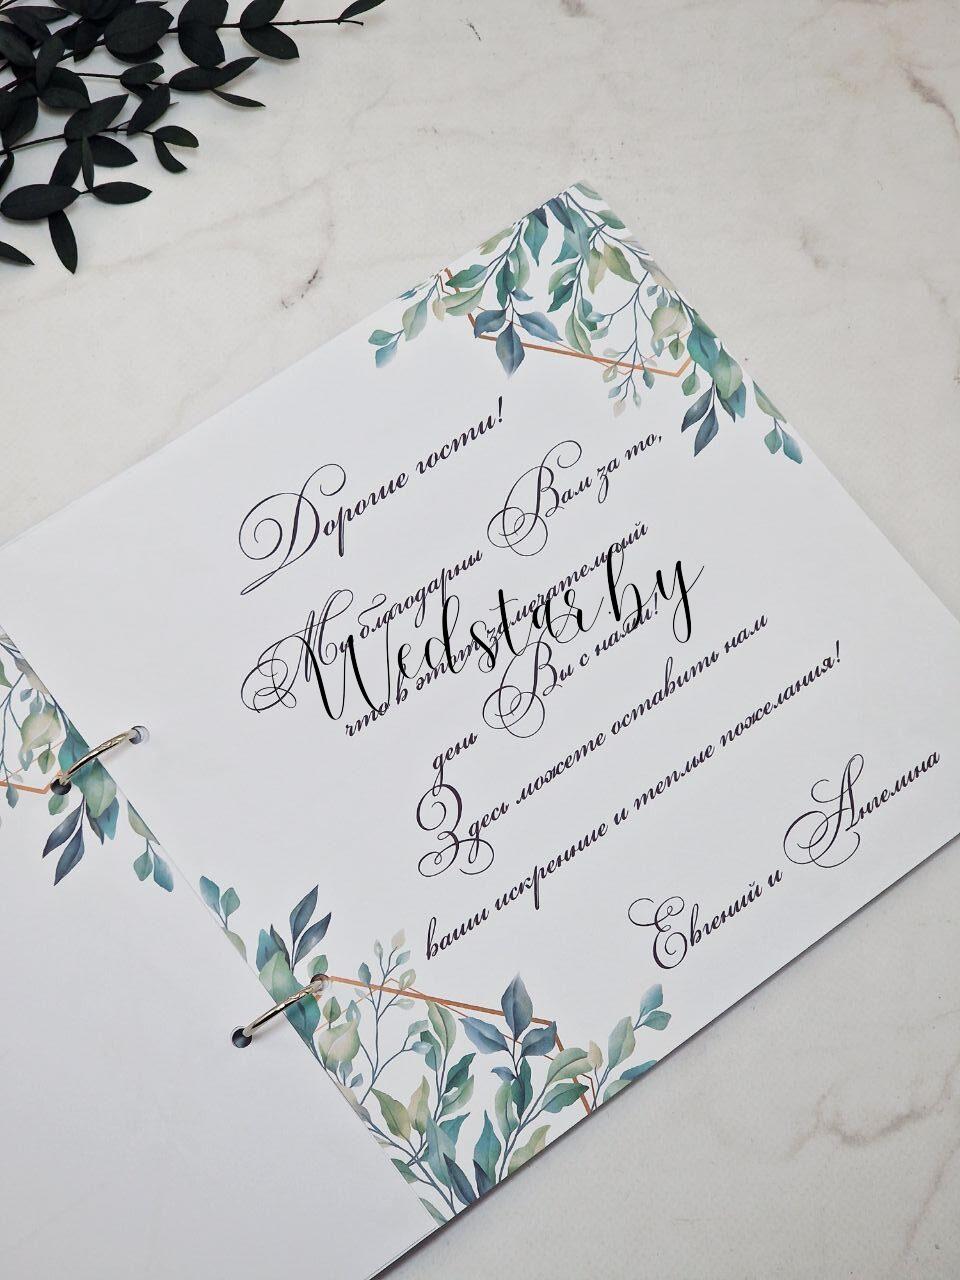 Дорогие гости!
Мы благодарны Вам за то,
что в этот замечательный
день Вы с нами!
Wedstar.by
Здесь можете оставить нам
ваши искренние и теплые пожелания!
Евгений и Ангелина